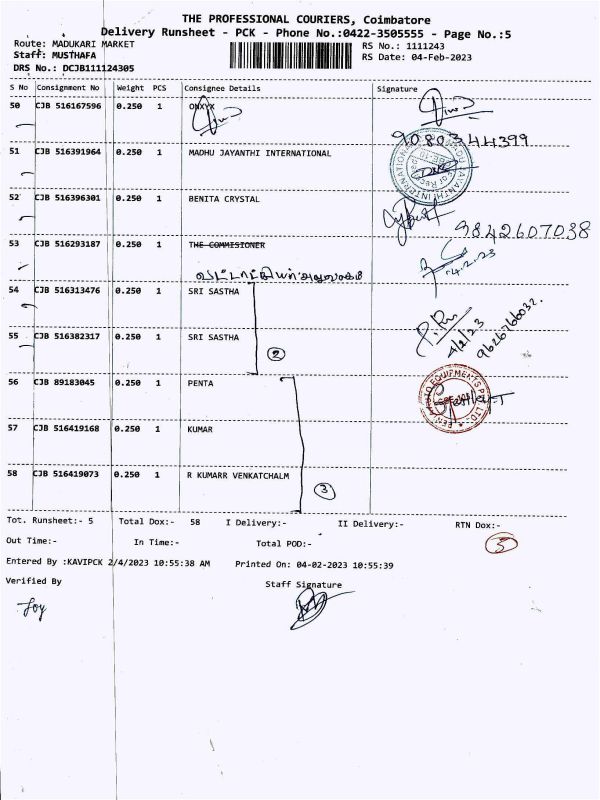 THE PROFESSIONAL COURIERS, Coimbatore
Delivery Runsheet - PCK - Phone No.:0422-3505555 - Page No.:5
Route: MADUKARI MARKET
RS No.: 1111243
Staff: MUSTHAFA
RS Date: 04-Feb-2023
DRS No.: DCJB111124305
S No Consignment No Weight PCS Consignee Details Signature
50 CJB 516167596 0.250 1 ONXYX
9080344399
51 CJB 516391964 0.250 1 MADHU JAYANTHI INTERNATIONAL
52 CJB 516396301 0.250 1 BENITA CRYSTAL
9842607038
53 CJB 516293187 0.250 1 THE COMMISIONER
வட்டாட்சியர் அலுவலகம்
4.2.23
54 CJB 516313476 0.250 1 SRI SASTHA
4/2/23
9626766032.
55 CJB 516382317 0.250 1 SRI SASTHA
2
56 CJB 89183045 0.250 1 PENTA
57 CJB 516419168 0.250 1 KUMAR
58 CJB 516419073 0.250 1 R KUMARR VENKATCHALM
3
Tot. Runsheet:- 5 Total Dox:- 58 I Delivery:- II Delivery:- RTN Dox:-
5
Out Time:- In Time:- Total POD:-
Entered By :KAVIPCK 2/4/2023 10:55:38 AM Printed On: 04-02-2023 10:55:39
Verified By Staff Signature
Joy